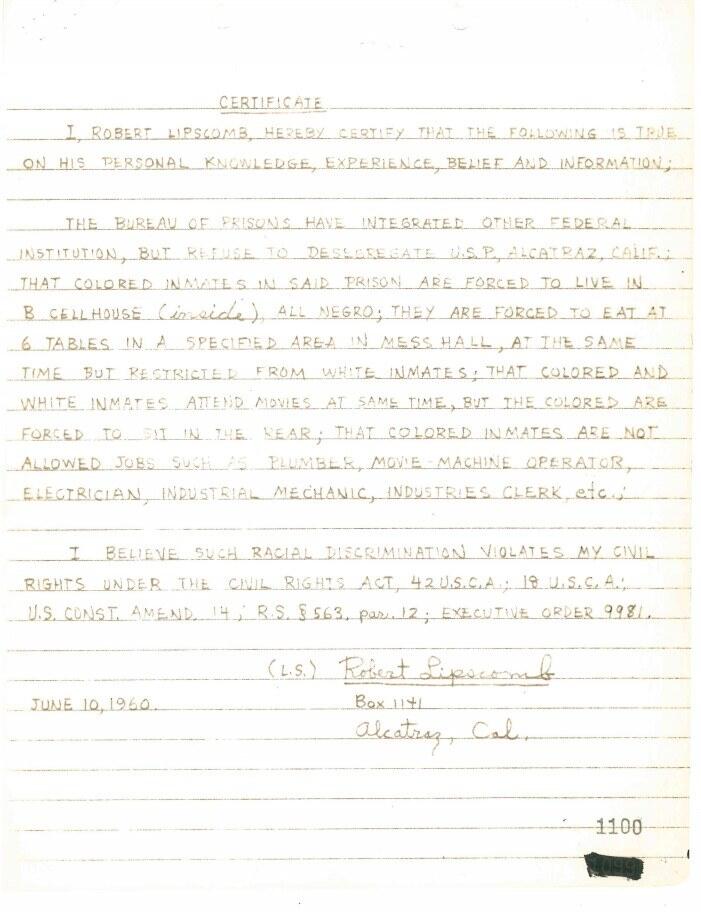 CERTIFICATE
I, ROBERT LIPSCOMB, HEREBY CERTIFY THAT THE FOLLOWING IS TRUE
ON HIS PERSONAL KNOWLEDGE, EXPERIENCE, BELIEF AND INFORMATION;
THE BUREAU OF PRISONS HAVE INTEGRATED OTHER FEDERAL
INSTITUTION, BUT REFUSE TO DESSEGREGATE U.S.P. ALCATRAZ, CALIF.;
THAT COLORED INMATES IN SAID PRISON ARE FORCED TO LIVE IN
B CELLHOUSE (inside), ALL NEGRO; THEY ARE FORCED TO EAT AT
6 TABLES IN A SPECIFIED AREA IN MESS HALL, AT THE SAME
TIME BUT RESTRICTED FROM WHITE INMATES; THAT COLORED AND
WHITE INMATES ATTEND MOVIES AT SAME TIME, BUT THE COLORED ARE
FORCED TO SIT IN THE REAR; THAT COLORED INMATES ARE NOT
ALLOWED JOBS SUCH AS PLUMBER, MOVIE-MACHINE OPERATOR,
ELECTRICIAN, INDUSTRIAL MECHANIC, INDUSTRIES CLERK, etc.;
I BELIEVE SUCH RACIAL DISCRIMINATION VIOLATES MY CIVIL
RIGHTS UNDER THE CIVIL RIGHTS ACT, 42 U.S.C.A.; 18 U.S.C.A.;
U.S. CONST. AMEND. 14; R.S. § 563, par. 12; EXECUTIVE ORDER 9981.
(L.S.) Robert Lipscomb
JUNE 10, 1960. Box 1141
Alcatraz, Cal.
1100